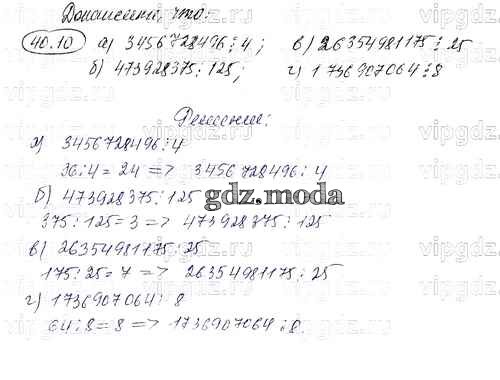 Докажите, что:
40.10 а) 3456728496⋮4; в) 26354981175⋮25
б) 473928375⋮125; г) 1736907064⋮8
Решение:
а) 3456728496⋮4
96:4=24 => 3456728496⋮4
б) 473928375⋮125
375:125=3 => 473928375⋮125
в) 26354981175⋮25
175:25=7 => 26354981175⋮25
г) 1736907064⋮8
64:8=8 => 1736907064⋮8.
gdz.moda
vipgdz.ru